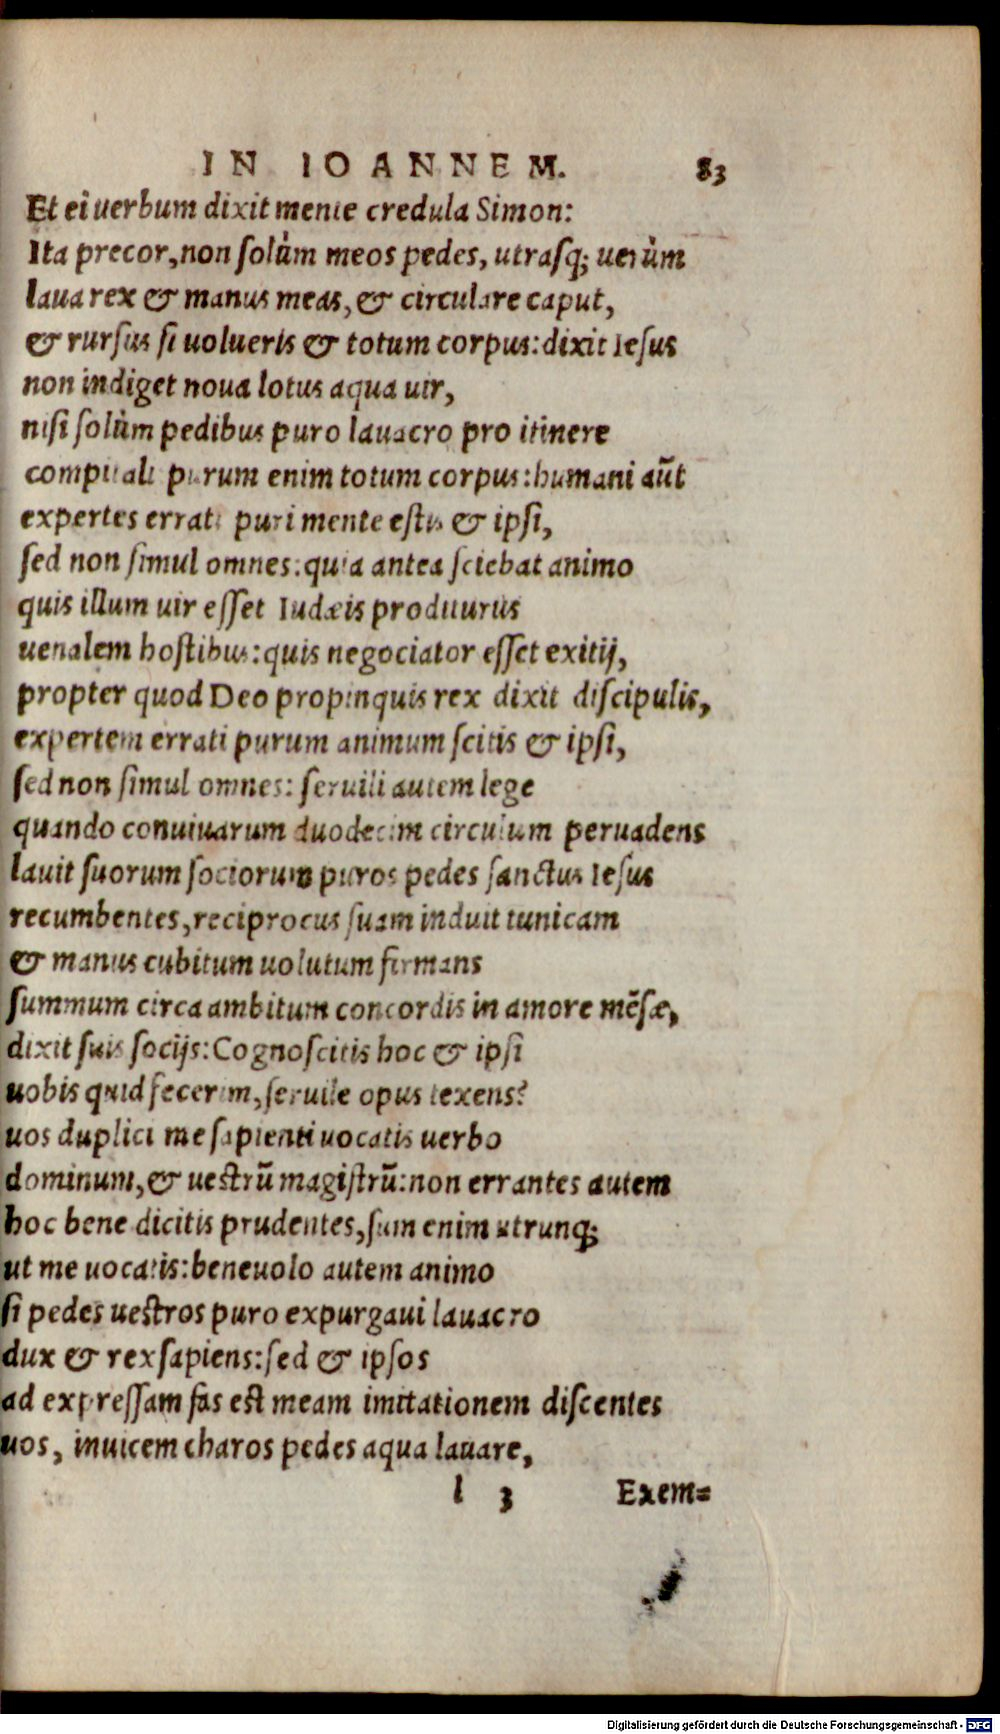 IN IOANNEM. 83
Et ei uerbum dixit mente credula Simon:
Ita precor, non solùm meos pedes, utrasq; uerùm
laua rex & manus meas, & circulare caput,
& rursus si uolueris & totum corpus: dixit Iesus
non indiget noua lotus aqua uir,
nisi solùm pedibus puro lauacro pro itinere
compitali purum enim totum corpus: humani aūt
expertes errati puri mente estis & ipsi,
sed non simul omnes: quia antea sciebat animo
quis illum uir esset Iudæis proditurus
uenalem hostibus: quis negociator esset exitij,
propter quod Deo propinquis rex dixit discipulis,
expertem errati purum animum scitis & ipsi,
sed non simul omnes: seruili autem lege
quando conuiuarum duodecim circulum peruadens
lauit suorum sociorum puros pedes sanctus Iesus
recumbentes, reciprocus suam induit tunicam
& manus cubitum uolutum firmans
summum circa ambitum concordis in amore mēsæ,
dixit suis socijs: Cognoscitis hoc & ipsi
uobis quid fecerim, seruile opus texens?
uos duplici me sapienti uocatis uerbo
dominum, & uestrū magistrū: non errantes autem
hoc bene dicitis prudentes, sum enim utrunq;
ut me uocatis: beneuolo autem animo
si pedes uestros puro expurgaui lauacro
dux & rex sapiens: sed & ipsos
ad expressam fas est meam imitationem discentes
uos, inuicem charos pedes aqua lauare,
l 3 Exem=
Digitalisierung gefördert durch die Deutsche Forschungsgemeinschaft - DFG